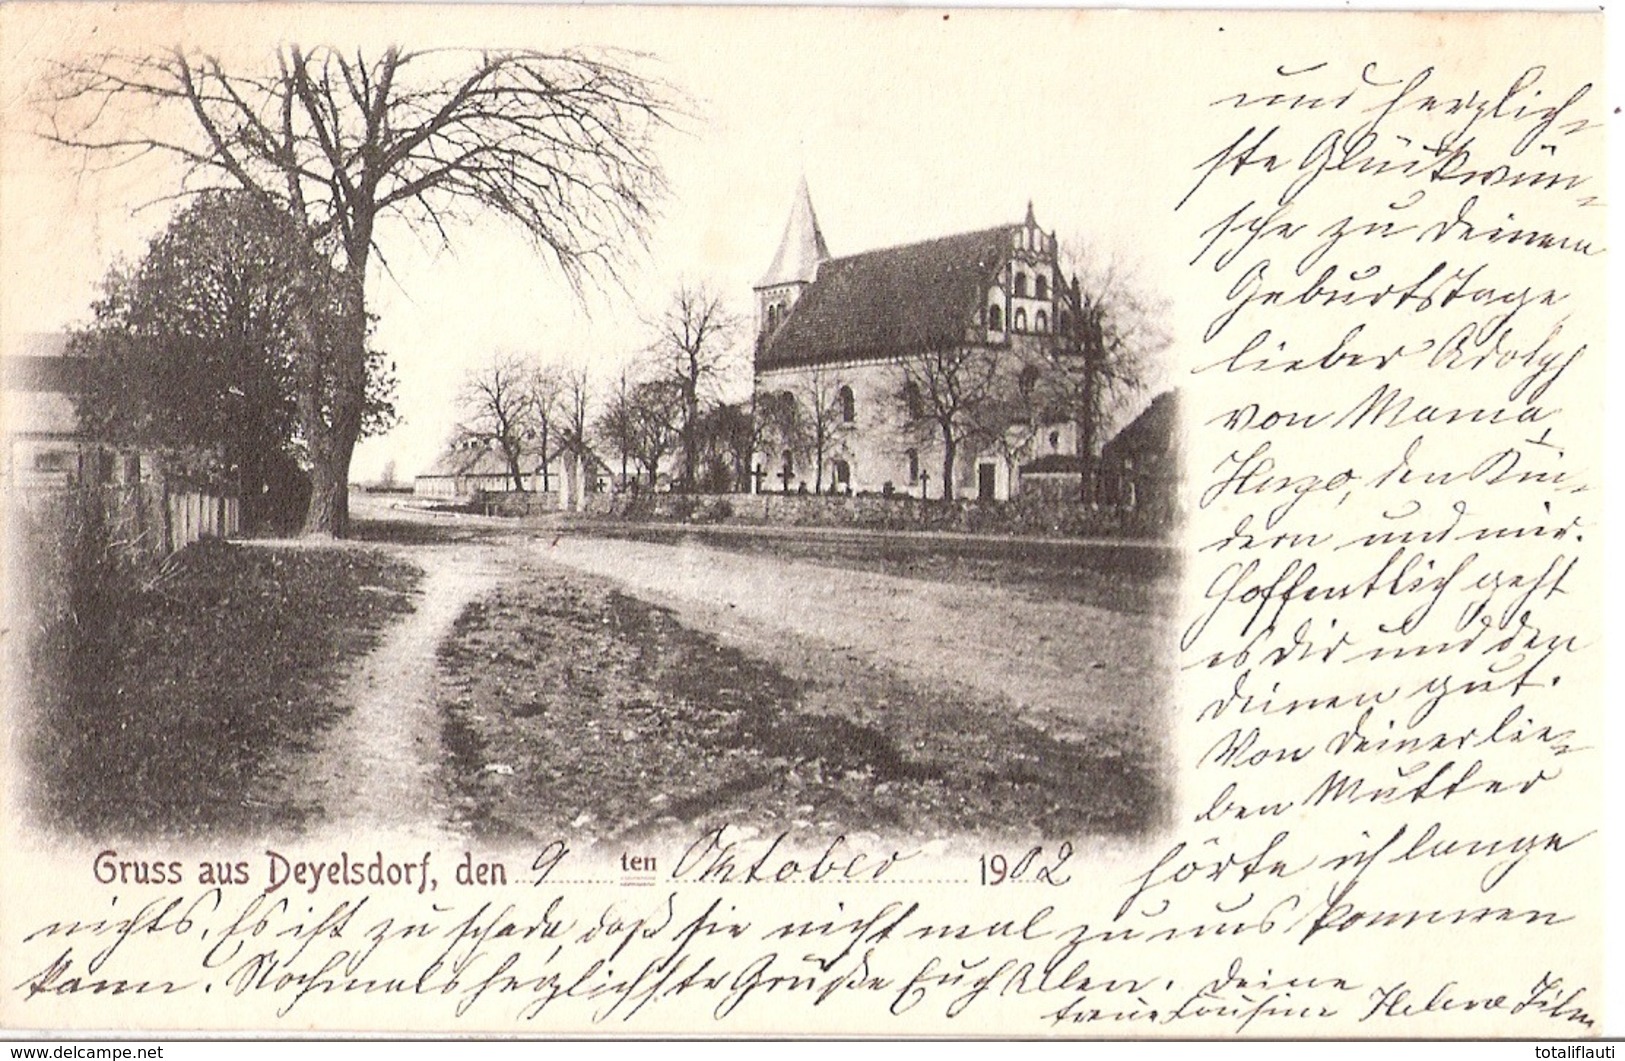 und herzlich-
ste Glückwün-
sche zu Deinem
Geburtstage
lieber Adolph
von Mama,
Hugo, den Kin-
dern und mir.
Hoffentlich geht
es Dir und den
Deinen gut.
Von Deiner lie-
ben Mutter
Gruss aus Deyelsdorf, den 9 ten Oktober 1902
hörte ich lange
nichts. Es ist zu schade, daß sie nicht mal zu uns kommen
kann. Nochmals herzlichste Grüße Euch Allen. Deine
treue Cousine Helene
totaliflauti